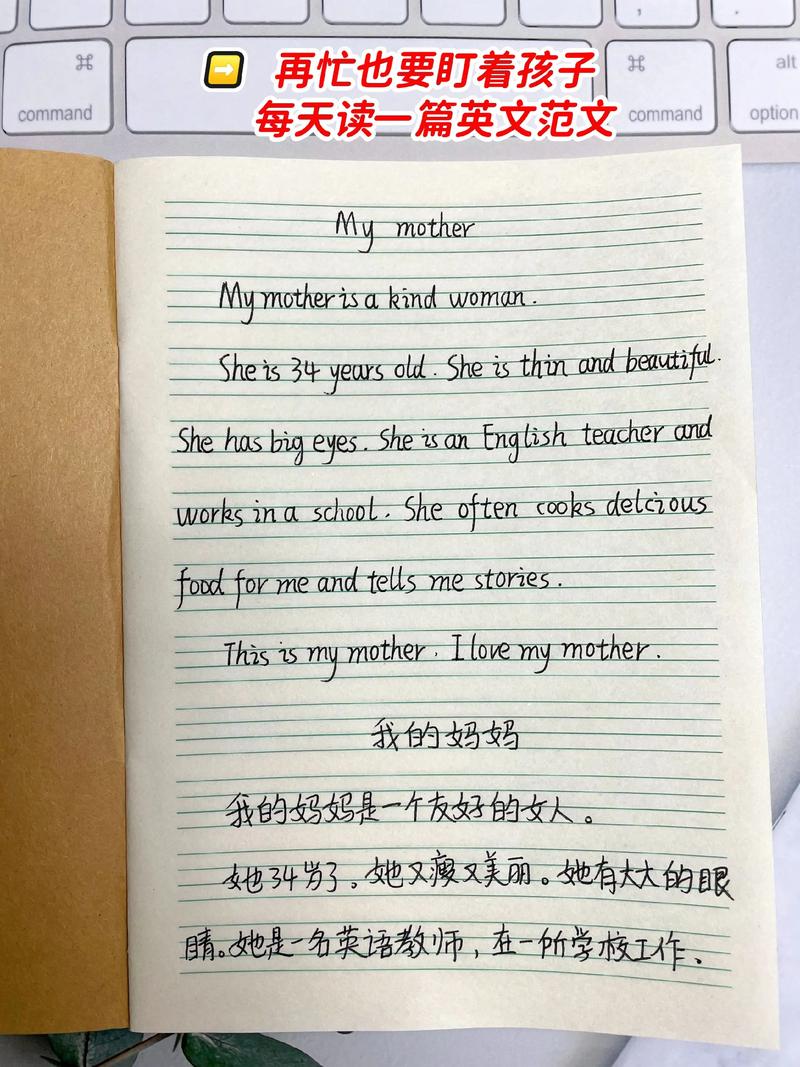 再忙也要盯着孩子
每天读一篇英文范文
⌘
command
⌘
command
alt
option
My mother
My mother is a kind woman.
She is 34 years old. She is thin and beautiful.
She has big eyes. She is an English teacher and
works in a school. She often cooks delcious
food for me and tells me stories.
This is my mother. I love my mother.
我的妈妈
我的妈妈是一个友好的女人。
她34岁了。她又瘦又美丽。她有大大的眼
睛。她是一名英语教师，在一所学校工作、